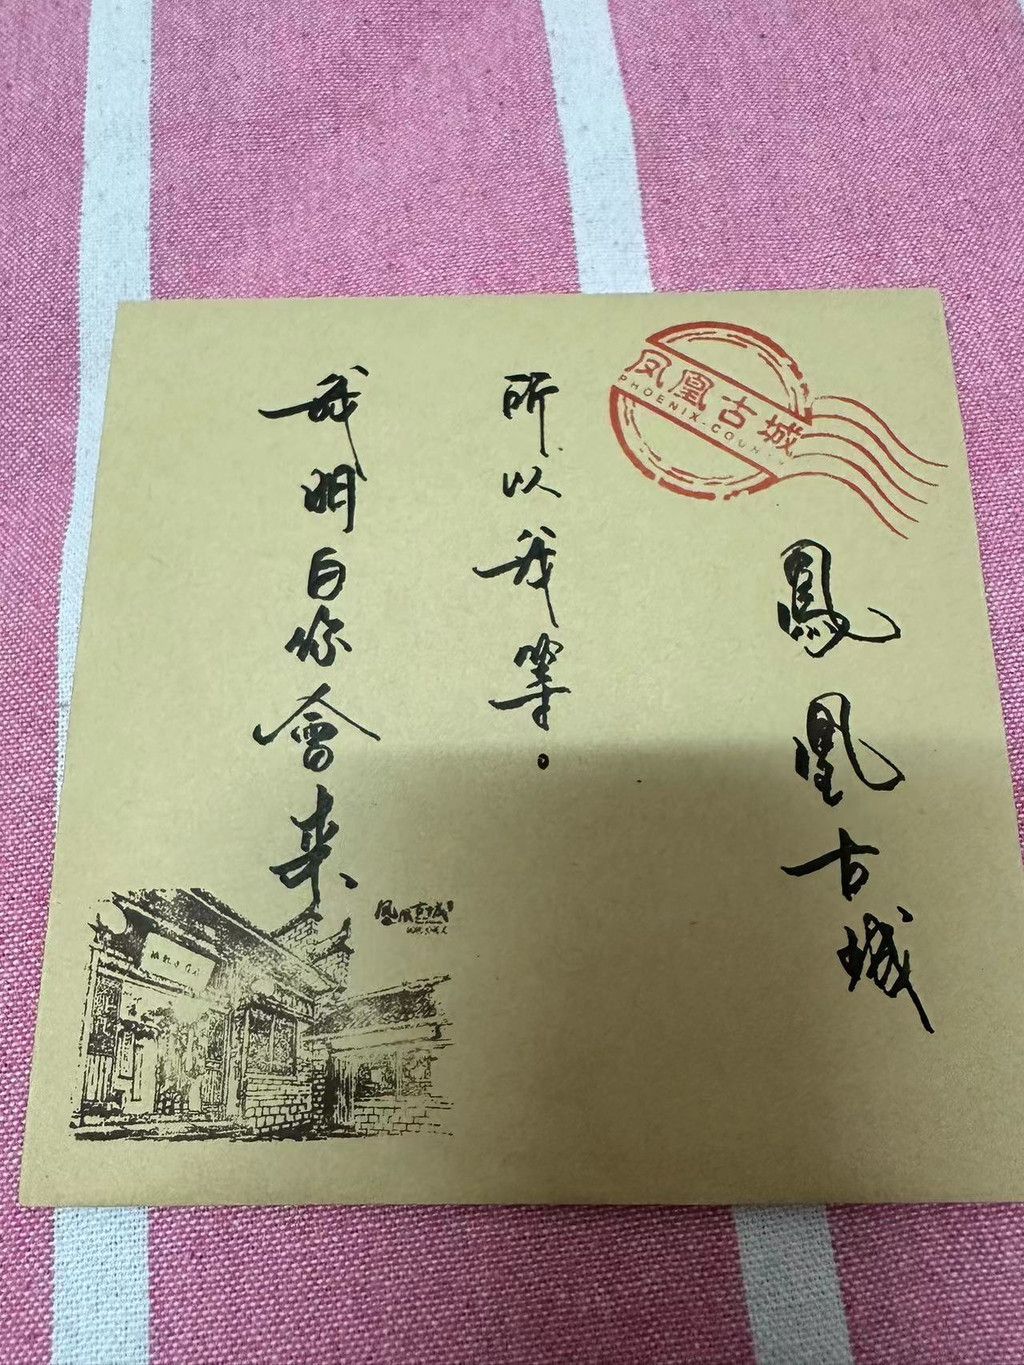 凤凰古城
PHOENIX·COUNTY
鳳凰古城
所以我等。
我明白你會来
凤凰古城